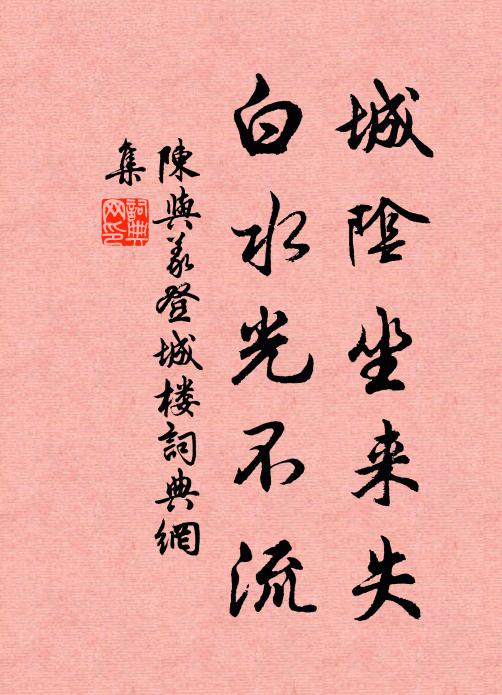 城陰坐来失
白水光不流
陳與義登城楼詞典網
集
詞典網印